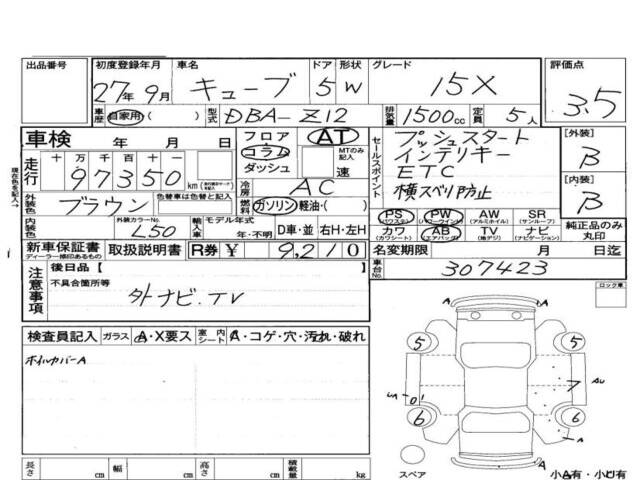 出品番号
初度登録年月
27年 9月
車名
キューブ
ドア 形状
5 W
グレード
15X
評価点
3.5
車歴 自家用・( )
型式 DBA-Z12
排気量 1500cc
定員 5人
車検 年 月 日
フロア
コラム
ダッシュ
AT
MTのみ記入
速
セールスポイント
プッシュスタート
インテリキー
ETC
横スベリ防止
[外装]
B
[内装]
B
現在色を記入→
走行
十 万 千 百 十 一
97350 km
冷房 AC
外装色 ブラウン
色替車は色替と記入
燃料 ガソリン・軽油・( )
内装色
外装カラーNo.
L50
輸入車
モデル年式
年・不明
D車・並 右H・左H
PS PW AW SR
(パワステ) (パワーウインドウ) (アルミホイル) (サンルーフ)
カワ AB TV ナビ
(カワシート) (エアバッグ) (地デジ) (ナビゲーション)
純正品のみ丸印
新車保証書
ディーラー捺印あるもの
取扱説明書
R券 ¥ 9,210
名変期限 月 日迄
車台No. 307423
注意事項
後日品【
不具合箇所等
外ナビ.TV
ロック車
検査員記入
ガラス A・X要ス
室内シート A・コゲ・穴・汚れ・破れ
ホイルカバーA
5 5
7 AU
6 6
スペア
小A有・小U有
長さ cm 幅 cm 高さ cm 積載量 kg